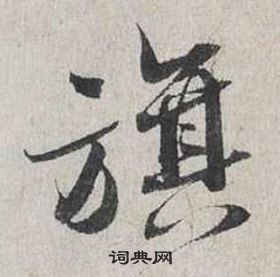 旗
词典网